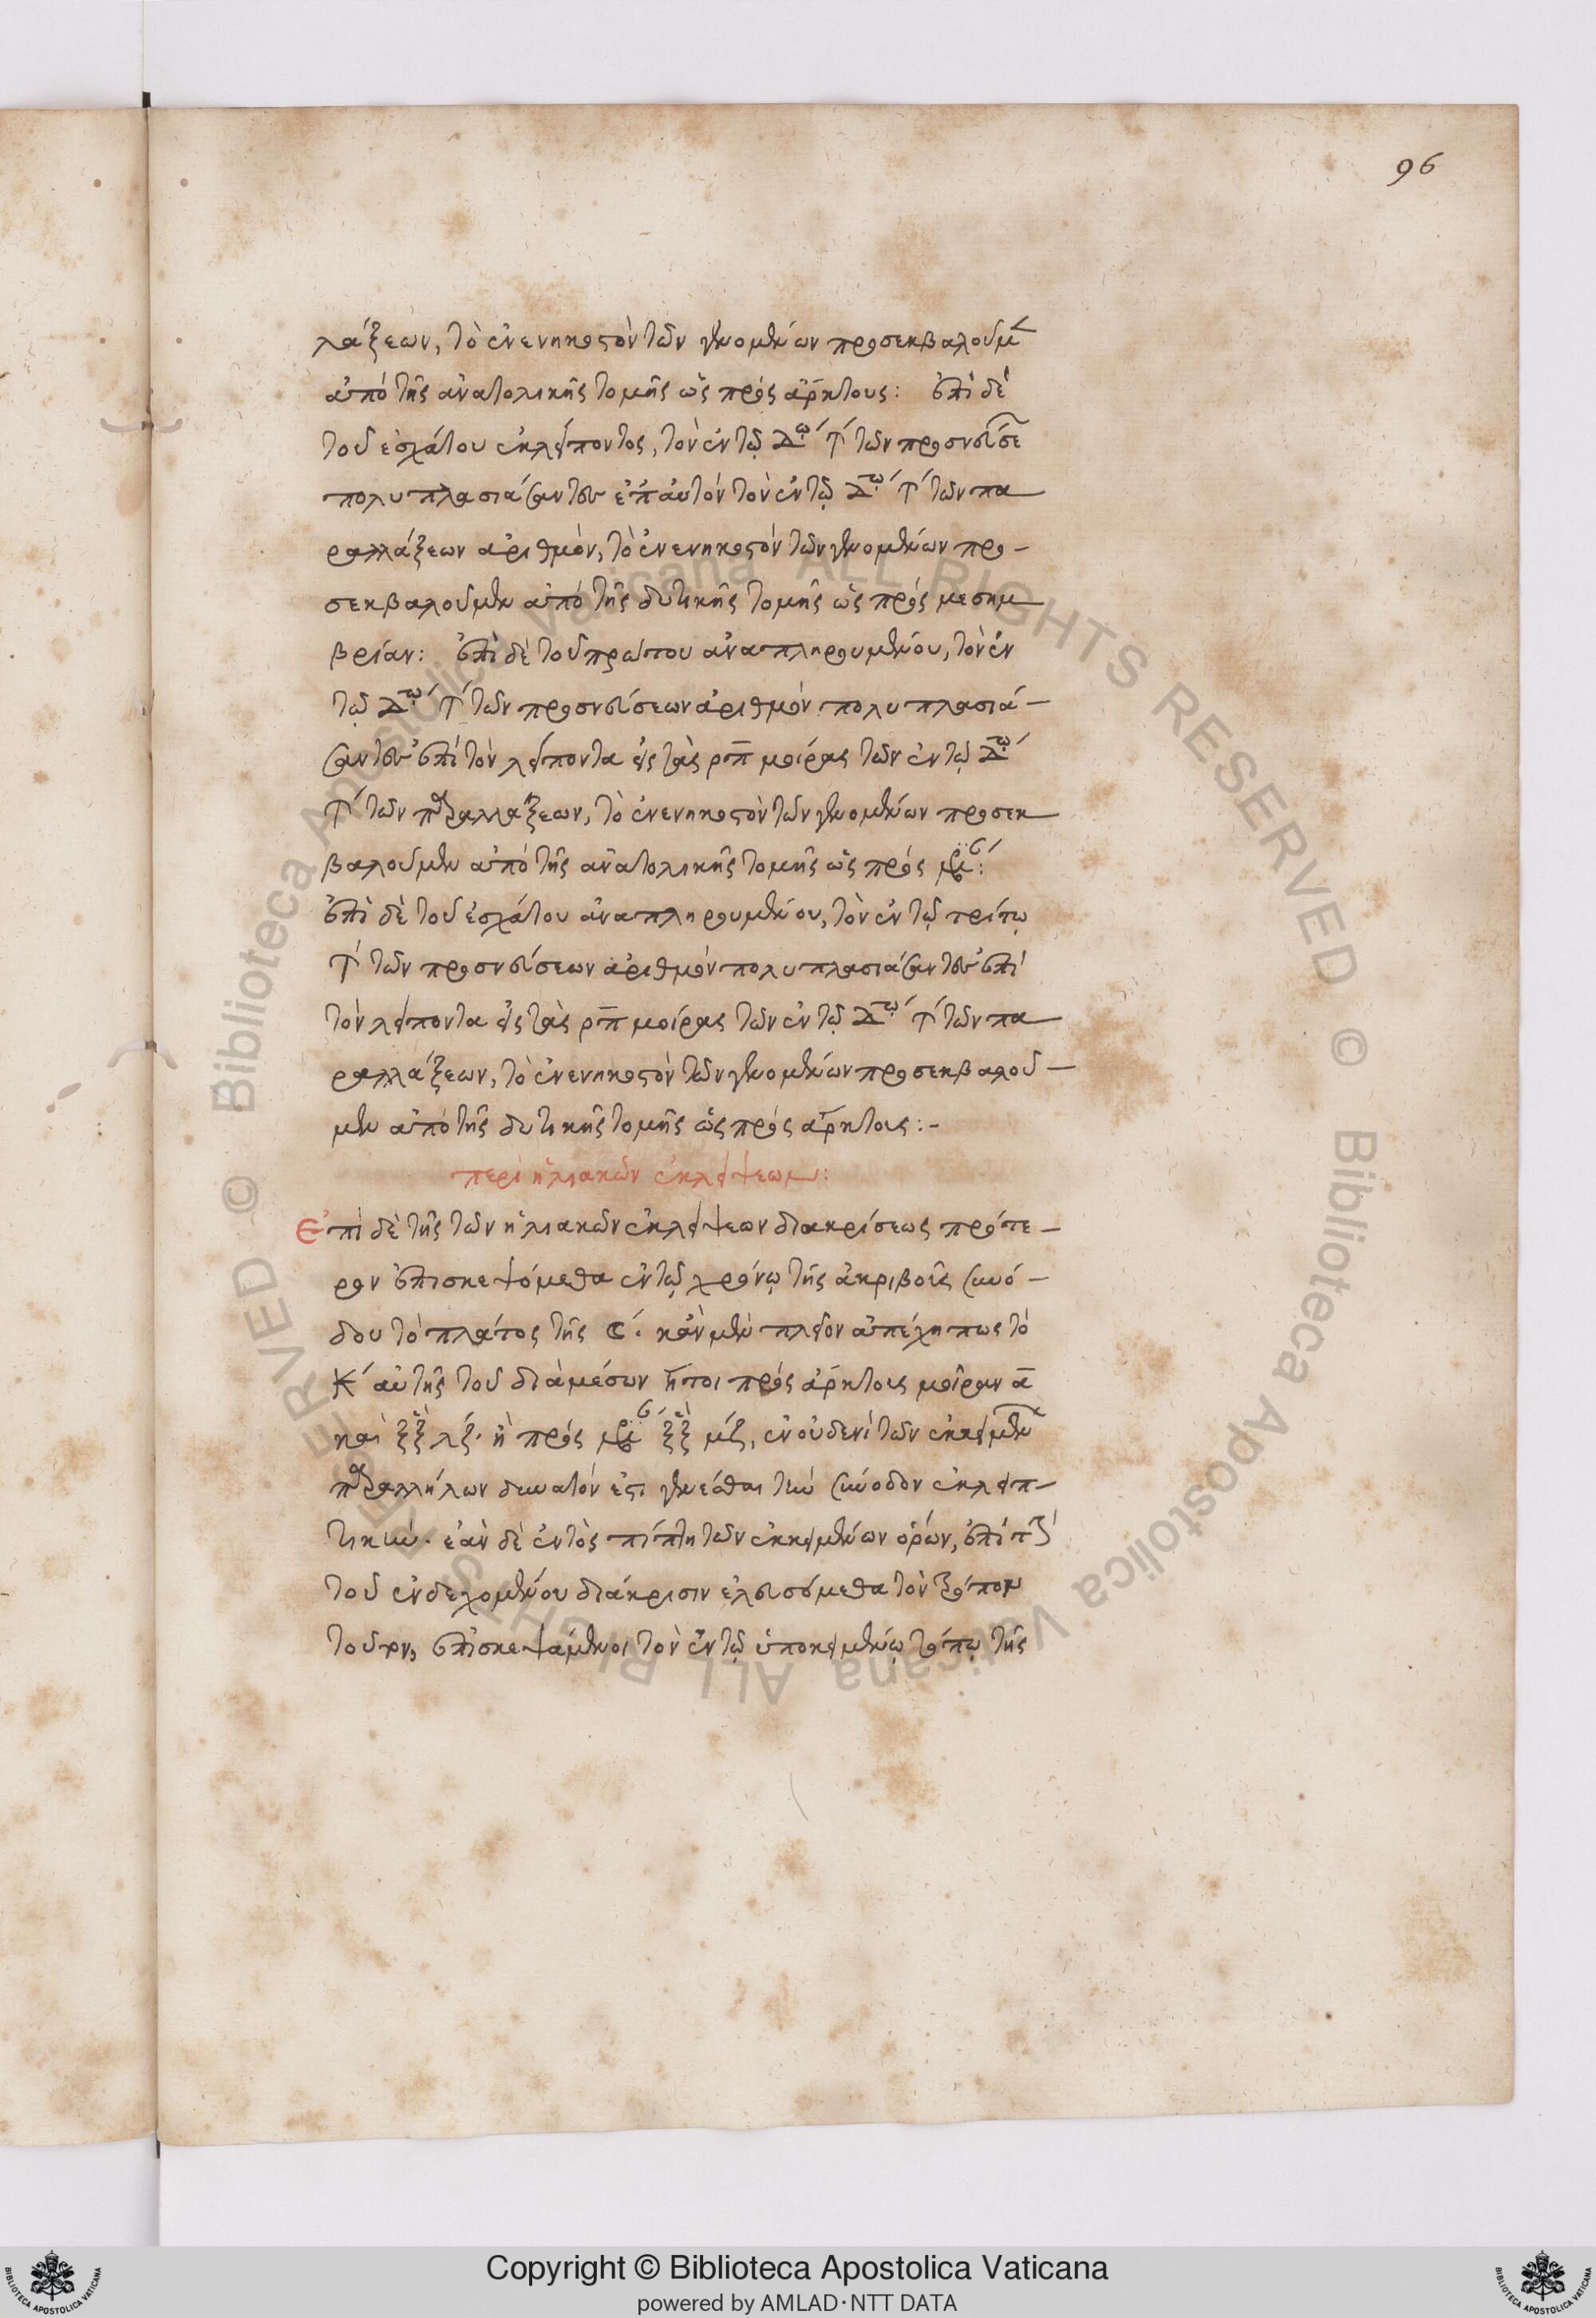 96
λάξεων, τὸ ἐνενηκοστὸν τῶν γινομένων προσεκβαλοῦμ
ἀπὸ τῆς ἀνατολικῆς τομῆς ὡς πρὸς ἄρκτους: ἐπὶ δὲ
τοῦ ἐσχάτου ἐκλείποντος, τὸν ἐν τῷ τῶν προσνεύσε
πολυπλασιάσαντες ἐπ' αὐτὸν τὸν ἐν τῷ τῶν πα
ραλλάξεων ἀριθμὸν, τὸ ἐνενηκοστὸν τῶν γινομένων προ-
σεκβαλοῦμεν ἀπὸ τῆς δυτικῆς τομῆς ὡς πρὸς μεσημ
βρίαν: ἐπὶ δὲ τοῦ πρώτου ἀναπληρουμένου, τὸν ἐν
τῷ τῶν προσνεύσεων ἀριθμὸν πολυπλασιά-
σαντες ἐπὶ τὸν λείποντα εἰς τὰς ρπ μοίρας τῶν ἐν τῷ
τῶν παραλλάξεων, τὸ ἐνενηκοστὸν τῶν γινομένων προσεκ
βαλοῦμεν ἀπὸ τῆς ἀνατολικῆς τομῆς ὡς πρὸς
ἐπὶ δὲ τοῦ ἐσχάτου ἀναπληρουμένου, τὸν ἐν τῷ τρίτῳ
τῶν προσνεύσεων ἀριθμὸν πολυπλασιάσαντες ἐπὶ
τὸν λείποντα εἰς τὰς ρπ μοίρας τῶν ἐν τῷ τῶν πα
ραλλάξεων, τὸ ἐνενηκοστὸν τῶν γινομένων προσεκβαλοῦ-
μεν ἀπὸ τῆς δυτικῆς τομῆς ὡς πρὸς ἄρκτους:-
περὶ ἡλιακῶν ἐκλείψεων:
Ἐπὶ δὲ τῆς τῶν ἡλιακῶν ἐκλείψεων διακρίσεως πρότε-
ρον ἐπισκεψόμεθα ἐν τῷ χρόνῳ τῆς ἀκριβοῦς συνό-
δου τὸ πλάτος τῆς ☾. κἂν μὲν πλεῖον ἀπέχῃ πως τὸ
αὐτῆς τοῦ διὰ μέσων ἤτοι πρὸς ἄρκτους μοῖραν α
καὶ ξξ λζ. ἢ πρὸς ξξ μζ, ἐν οὐδενὶ τῶν ἐκκειμέν
παραλλήλων δυνατόν ἐστι γινέσθαι τὴν σύνοδον ἐκλειπ-
τικήν. ἐὰν δὲ ἐντὸς πίπτῃ τῶν ἐκκειμένων ὅρων, ἐπὶ
τοῦ ἐνδεχομένου διάκρισιν ἐλευσόμεθα τὸν τρόπον
τοῦτον, ἐπισκεψάμενοι τὸν ἐν τῷ ὑποκειμένῳ τόπῳ τῆς
Copyright © Biblioteca Apostolica Vaticana
powered by AMLAD·NTT DATA